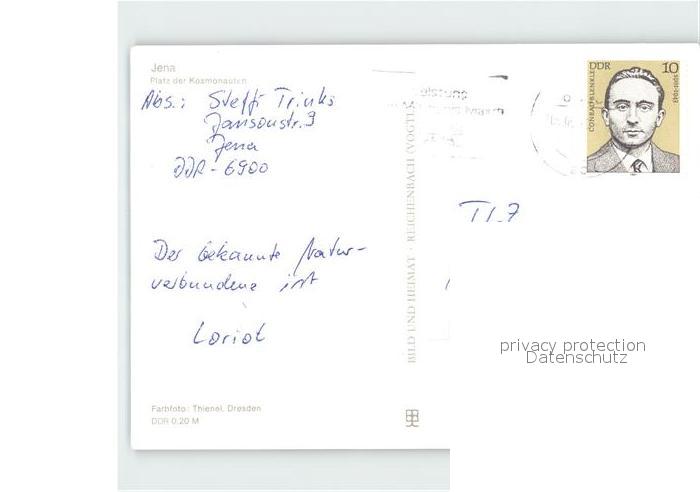 Jena
Platz der Kosmonauten
Abs.: Steffi Trinks
Jansonstr. 9
Jena
DDR - 6900
Der bekannte Natur-
verbundene ist
Loriot
Farbfoto: Thienel, Dresden
DDR 0,20 M
BILD UND HEIMAT · REICHENBACH (VOGTL
DDR 10
TI.7
privacy protection
Datenschutz